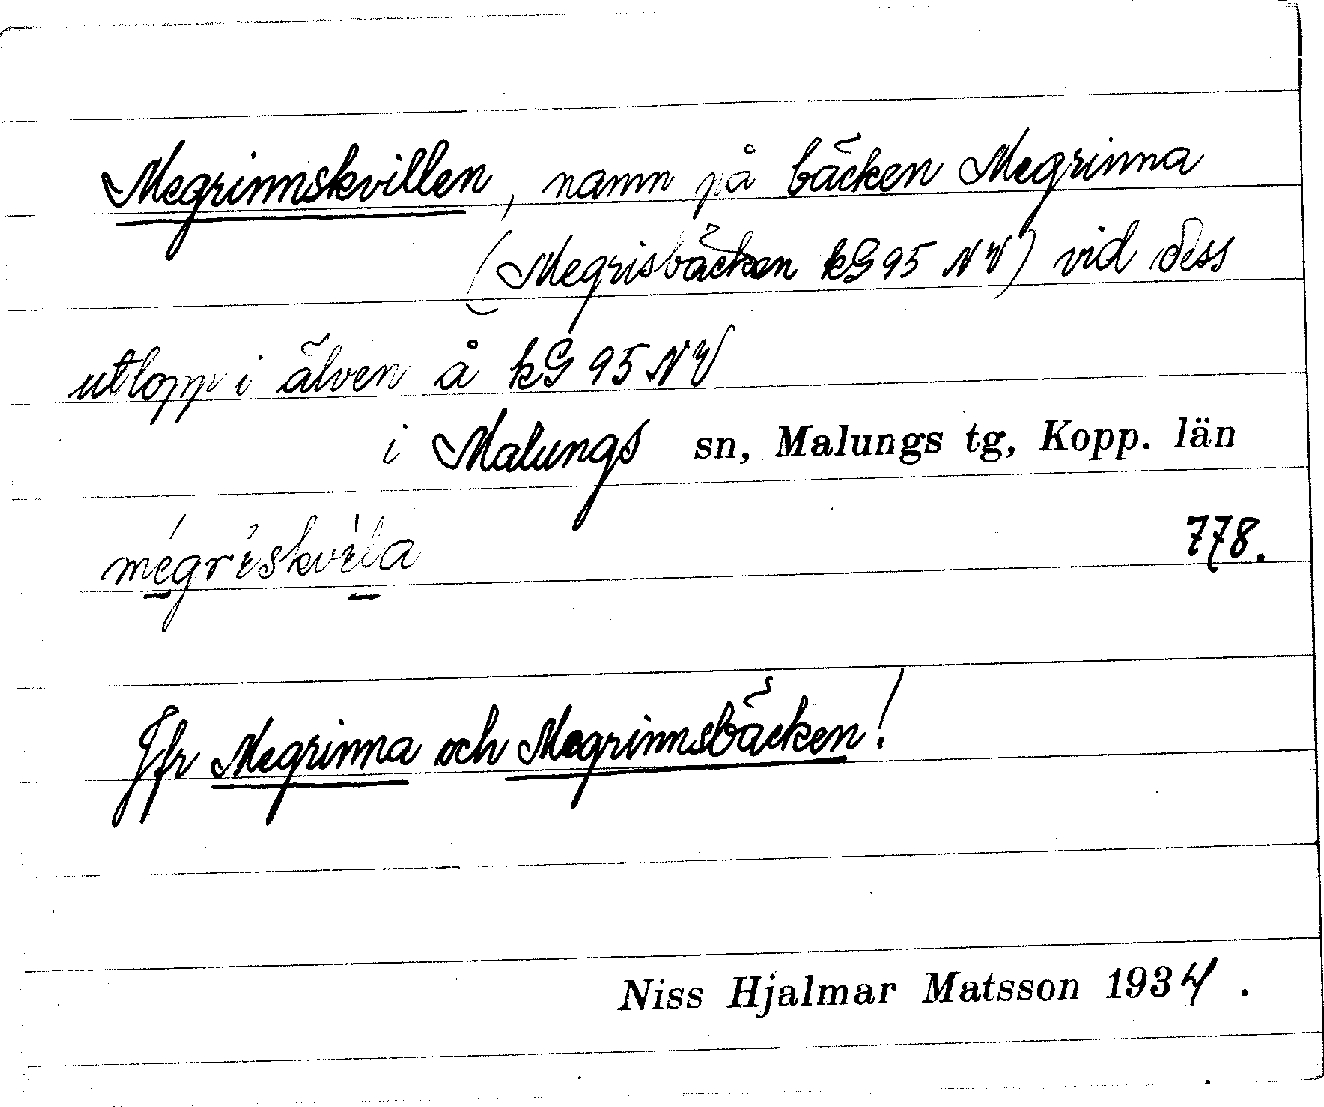 Megrinnskvillen, namn på bäcken Megrinna
(Megrisbäcken kG 95 NV) vid dess
utlopp i älven å kG 95 NV
i Malungs sn, Malungs tg, Kopp. län
mégrèskvìla 778.
Jfr Megrinna och Megrinnsbäcken!
Niss Hjalmar Matsson 1934.